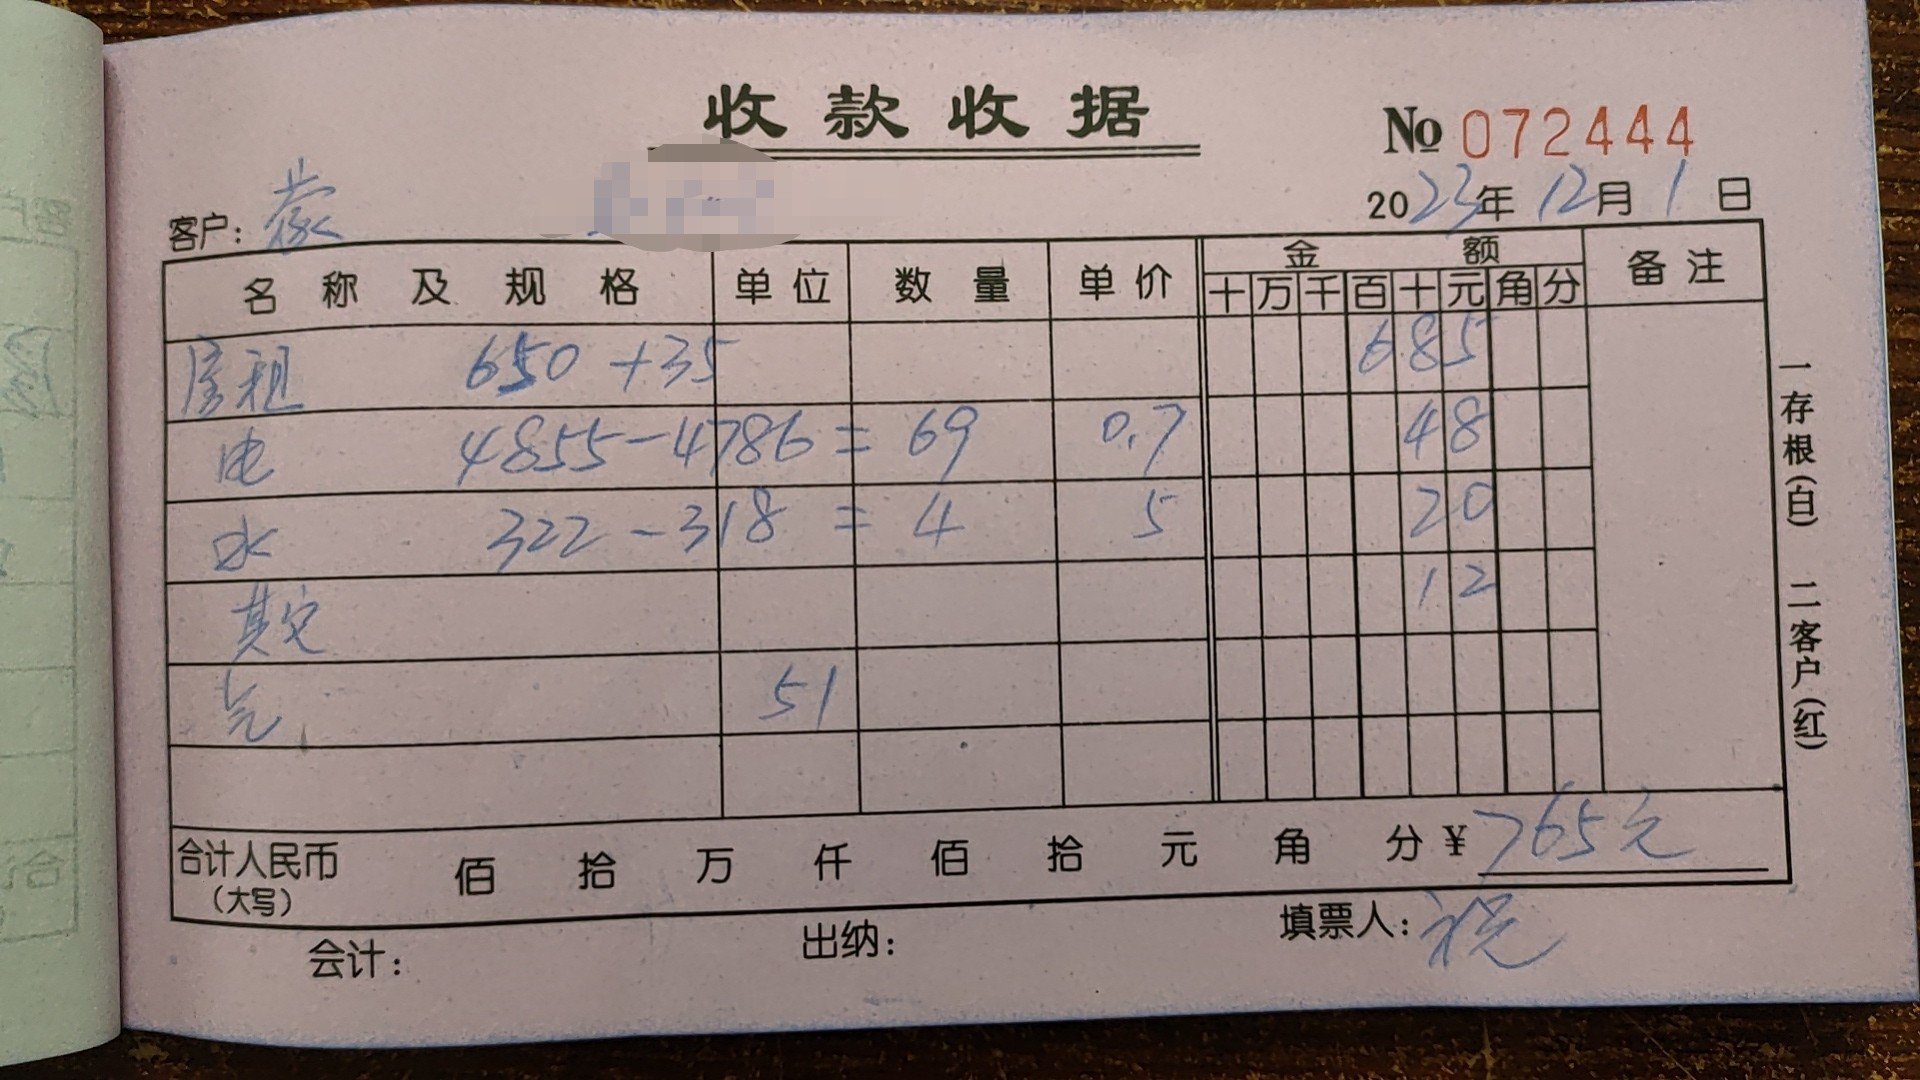 收款收据
No 072444
客户: 蒙
2023年 12月 1日
名称及规格 单位 数量 单价 金额 备注
十 万 千 百 十 元 角 分
房租 650 +35 685
电 4855-4786 = 69 0.7 48
水 322-318 = 4 5 20
其它 12
气 51
合计人民币 佰 拾 万 仟 佰 拾 元 角 分 ¥ 765元
(大写)
会计: 出纳: 填票人: 祝
一存根(白) 二客户(红)